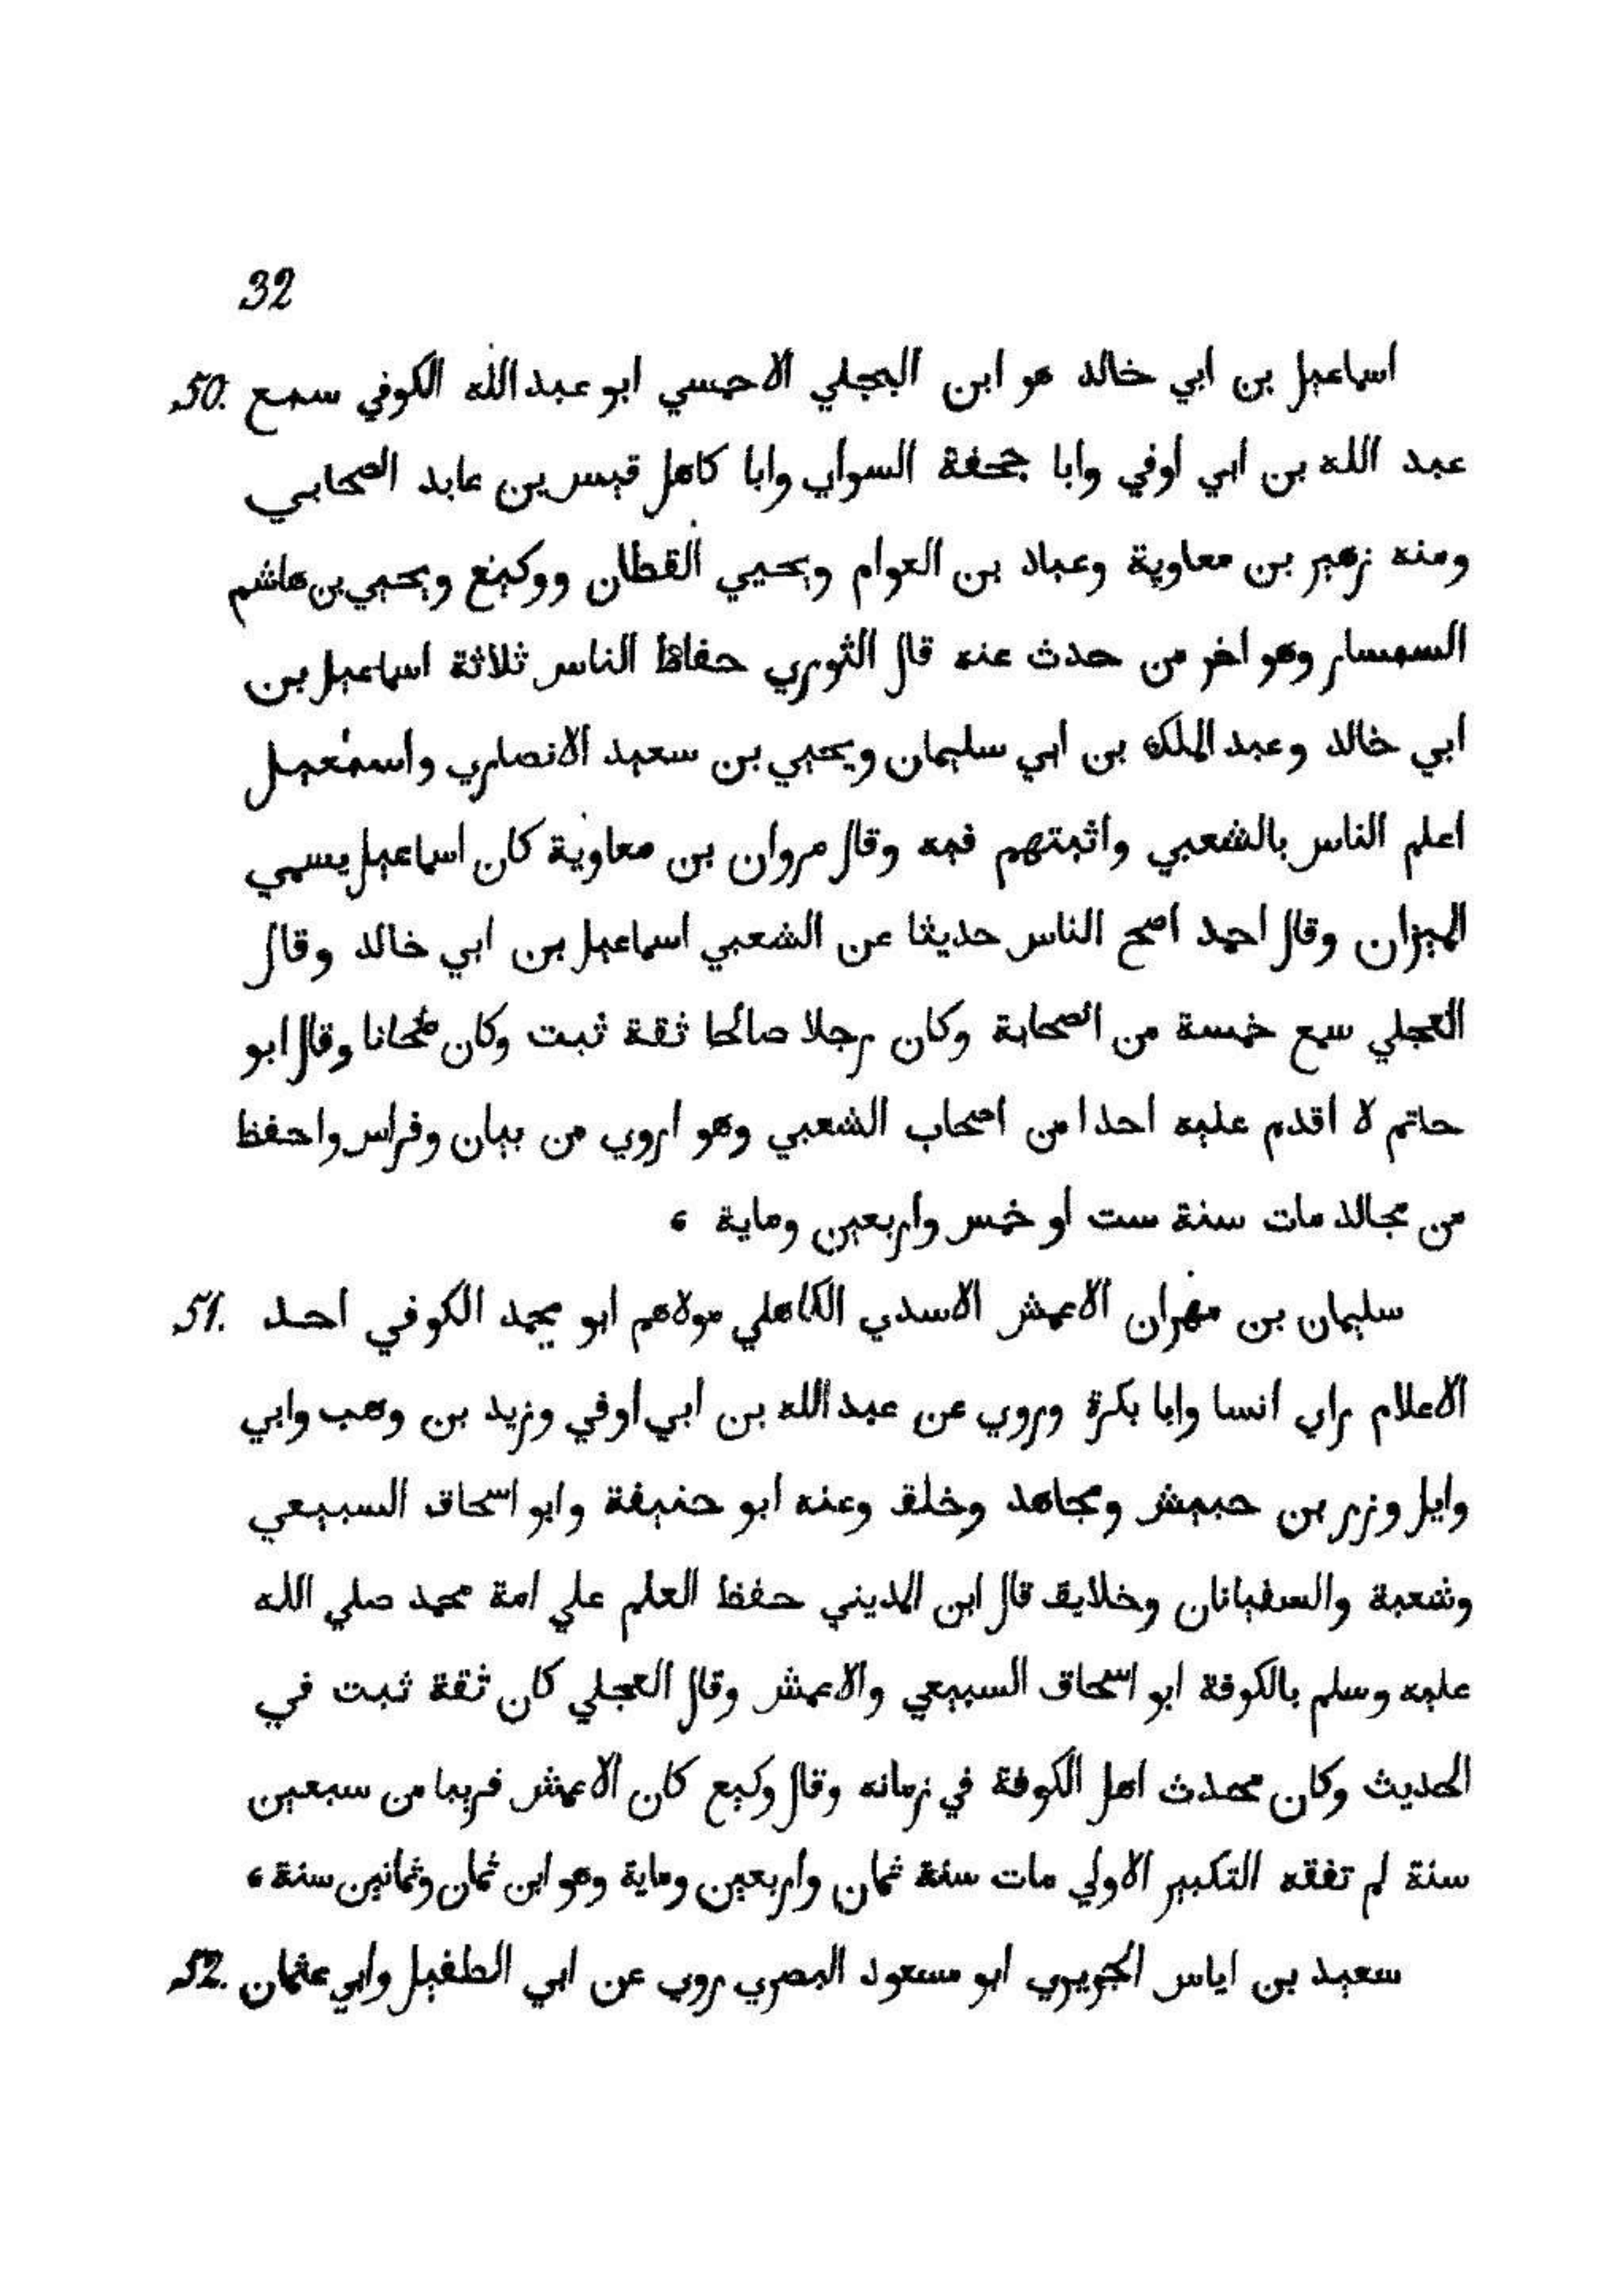 32
اسماعيل بن ابي خالد هو ابن البجلي الاحمسي ابو عبد الله الكوفي سمع 50.
عبد الله بن ابي اوفي وابا جحفة السواي وابا كاهل قيس بن عابد الصحابي
ومنه زهير بن معاوية وعباد بن العوام ويحيي القطان ووكيع ويحيي بن هاشم
السمسار وهو اخر من حدث عنه قال الثوري حفاظ الناس ثلاثة اسماعيل بن
ابي خالد وعبد الملك بن ابي سليمان ويحيي بن سعيد الانصاري واسمعيل
اعلم الناس بالشعبي واثبتهم فيه وقال مروان بن معاوية كان اسماعيل يسمي
الميزان وقال احمد اصح الناس حديثا عن الشعبي اسماعيل بن ابي خالد وقال
العجلي سمع خمسة من الصحابة وكان رجلا صالحا ثقة ثبت وكان طحانا وقال ابو
حاتم لا اقدم عليه احدا من اصحاب الشعبي وهو اروي من بيان وفراس واحفظ
من مجالد مات سنة ست او خمس واربعين وماية ،
سليمان بن مهران الاعمش الاسدي الكاهلي مولاهم ابو محمد الكوفي احد 51.
الاعلام راي انسا وابا بكرة وروي عن عبد الله بن ابي اوفي وزيد بن وهب وابي
وايل وزر بن حبيش ومجاهد وخلق وعنه ابو حنيفة وابو اسحاق السبيعي
وشعبة والسفيانان وخلايق قال ابن المديني حفظ العلم علي امة محمد صلي الله
عليه وسلم بالكوفة ابو اسحاق السبيعي والاعمش وقال العجلي كان ثقة ثبت في
الحديث وكان محدث اهل الكوفة في زمانه وقال وكيع كان الاعمش قريبا من سبعين
سنة لم تفقه التكبير الاولي مات سنة ثمان واربعين وماية وهو ابن ثمان وثمانين سنة ،
سعيد بن اياس الجويري ابو مسعود البصري روي عن ابي الطفيل وابي عثمان 52.